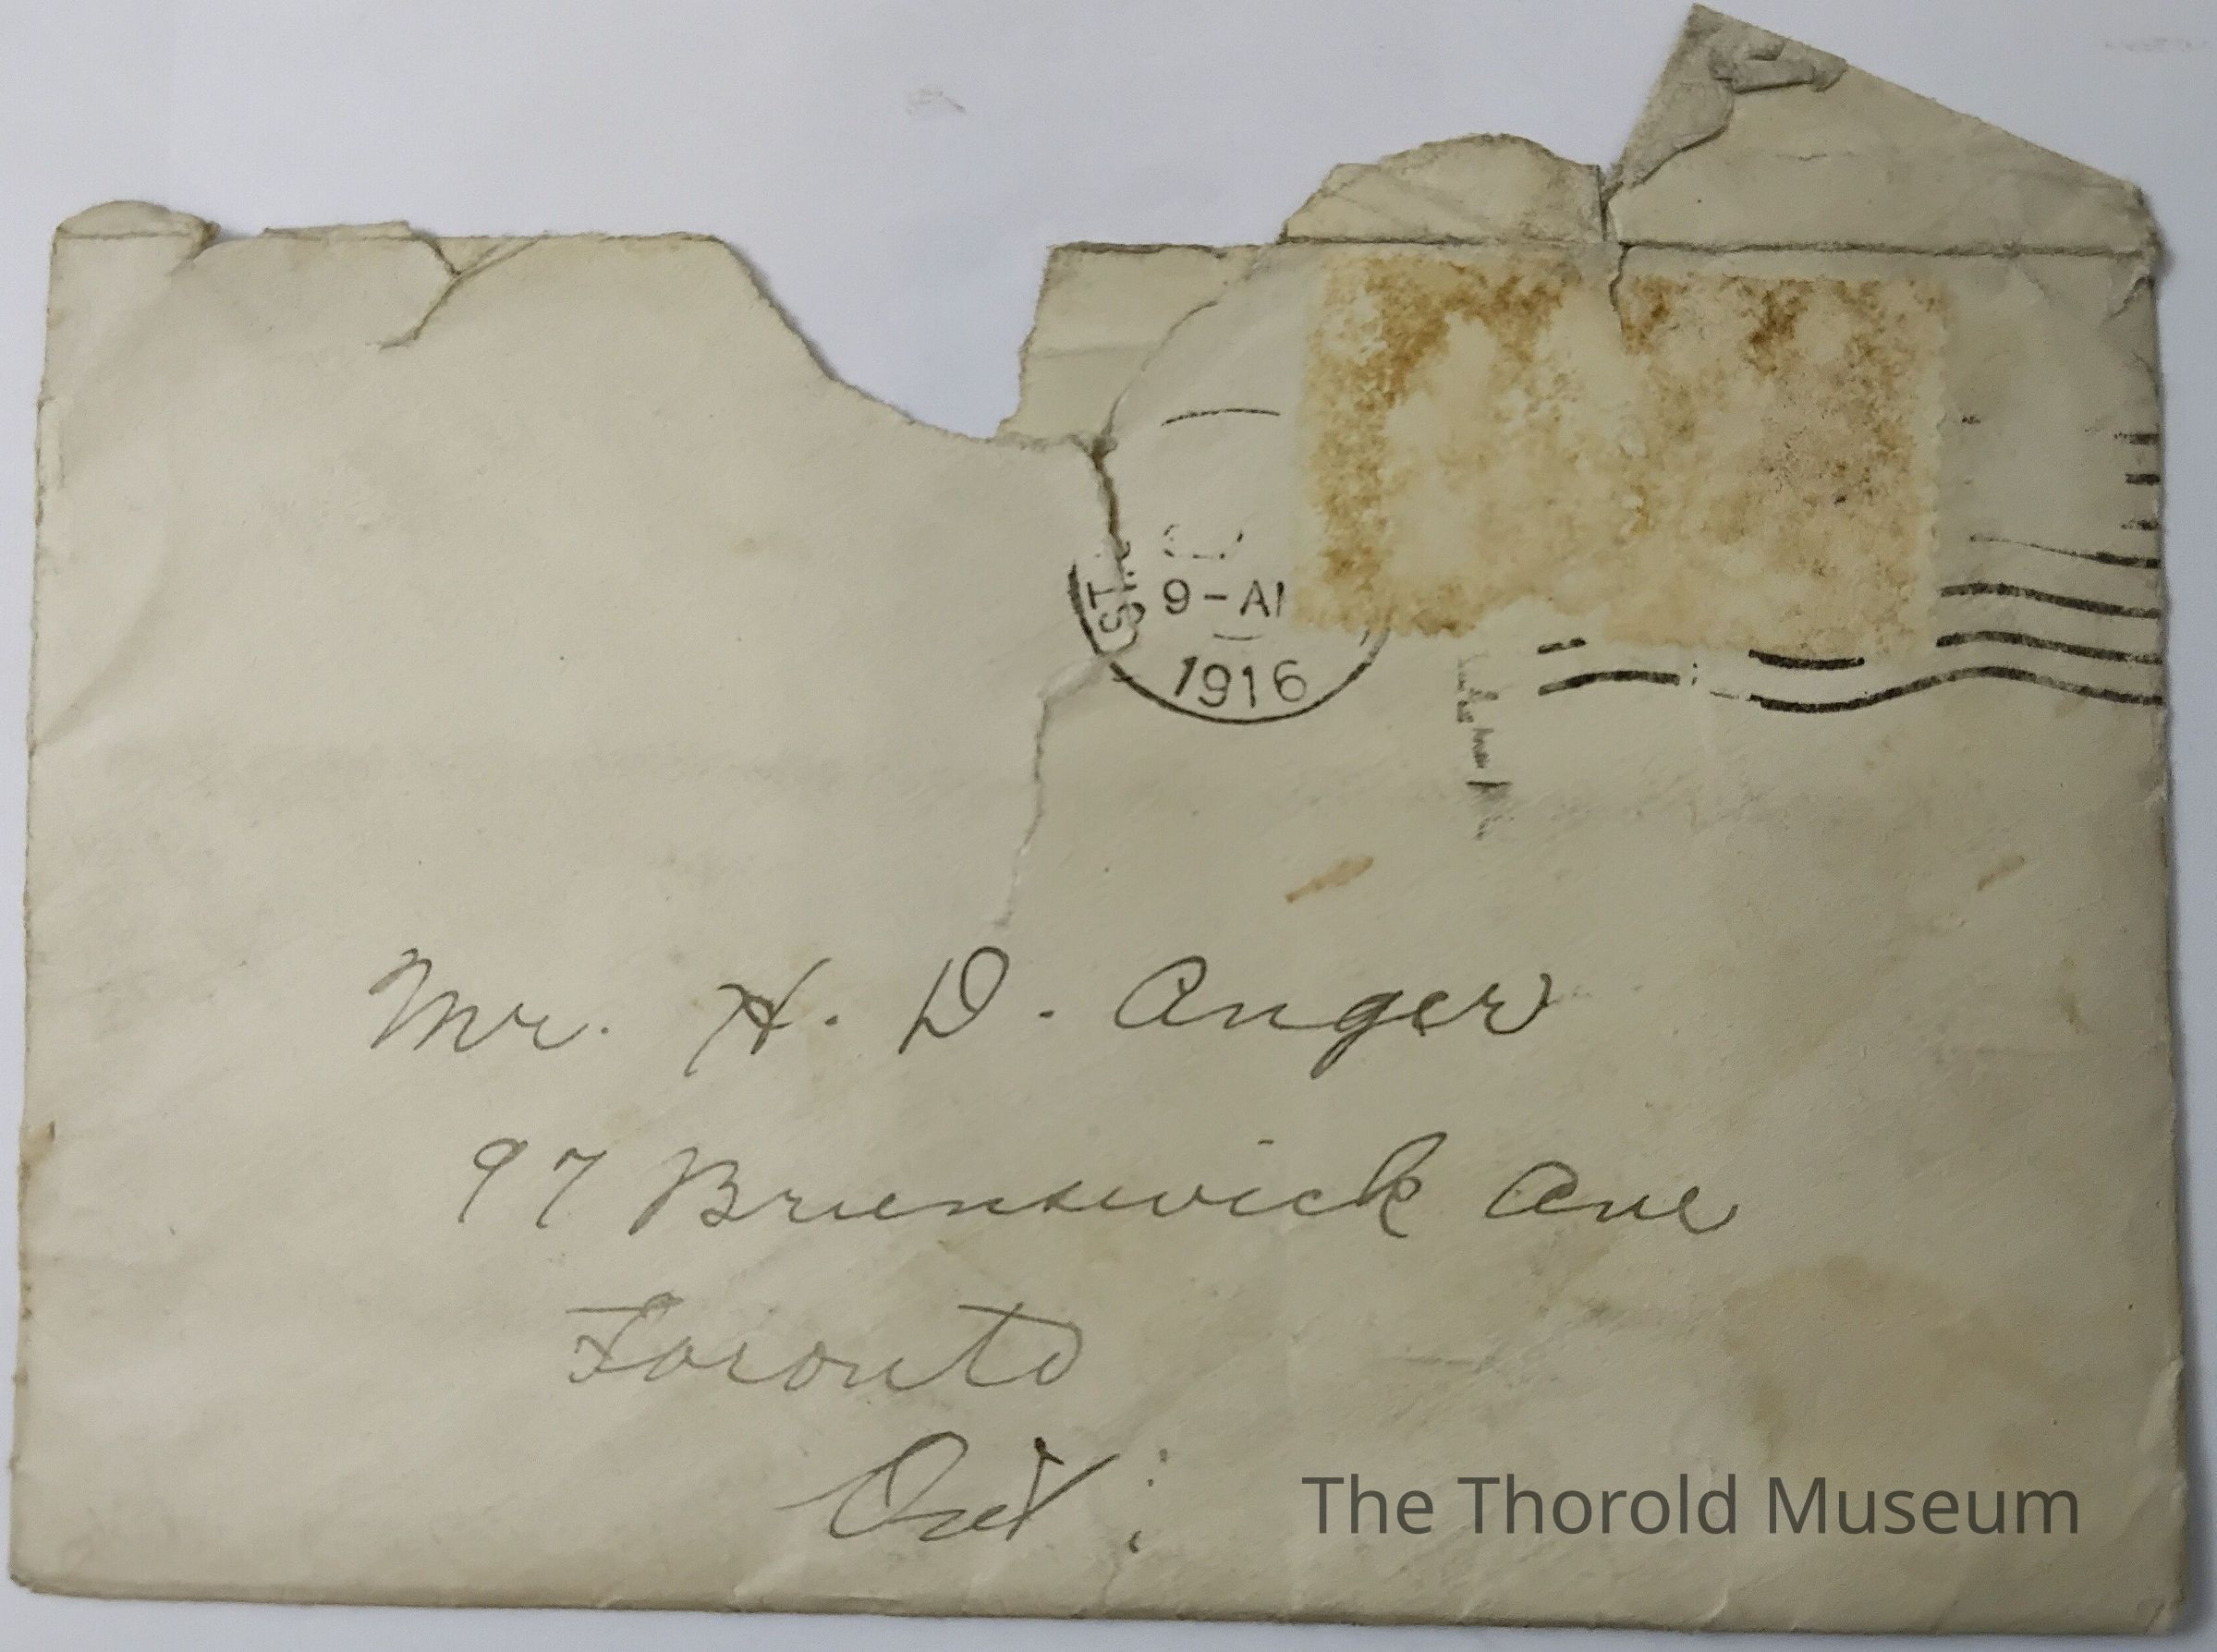 9-AM
1916
Mr. H. D. Anger
97 Brunswick Ave
Toronto
Ont.
The Thorold Museum